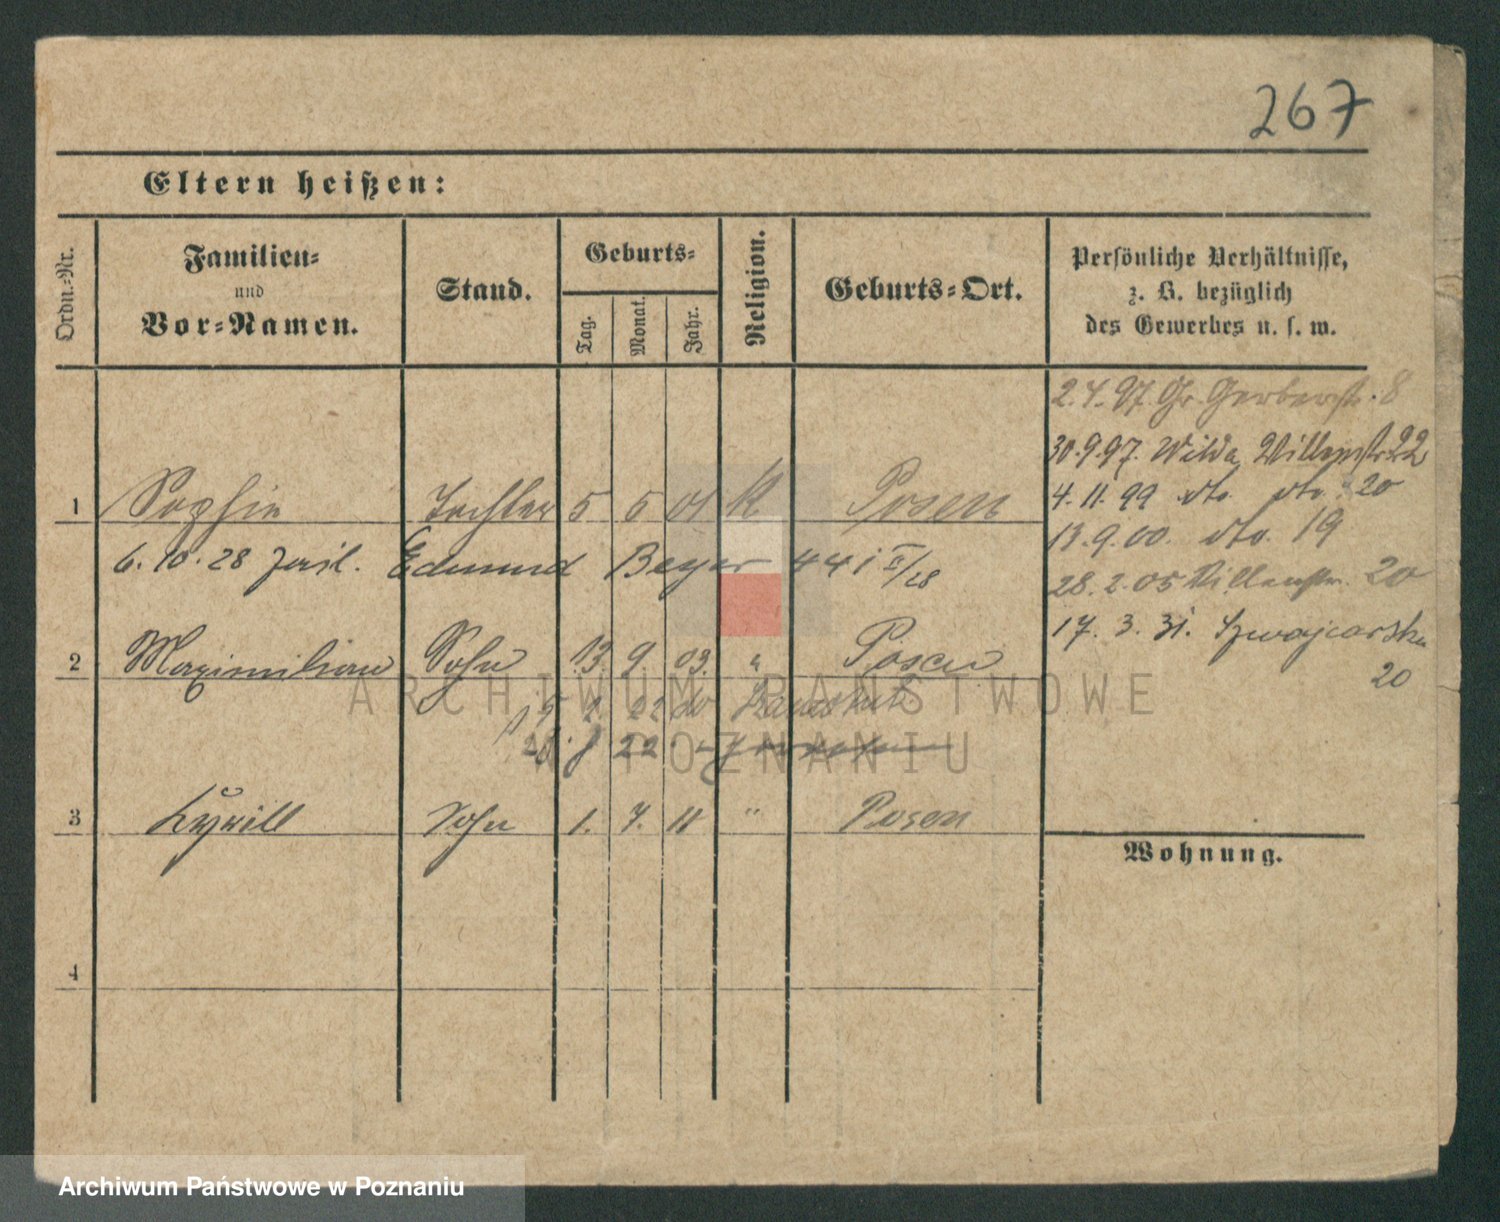 267
Eltern heißen:
Ordn.-Nr.
Familien-
und
Vor-Namen.
Stand.
Geburts-
Tag.
Monat.
Jahr.
Religion.
Geburts-Ort.
Persönliche Verhältnisse,
z. B. bezüglich
des Gewerbes u. s. w.
2.4.97. Gr. Gerberstr. 8
30.9.97. Wilda, Villenstr 22
4.11.99 dto. dto. 20
13.9.00. dto. 19
28.2.05 Villenstr. 20
17.3.31. Szwajcarska
20
1 Sophie Tochter 5 5 01 K Posen
6.10.28 Edmund Beyer 441 II/28
2 Maximilian Sohn 13. 9. 03. " Posen
22
22
3 Kyrill Sohn 1. 7. 11 " Posen
4
Wohnung.
ARCHIWUM PAŃSTWOWE
W POZNANIU
Archiwum Państwowe w Poznaniu